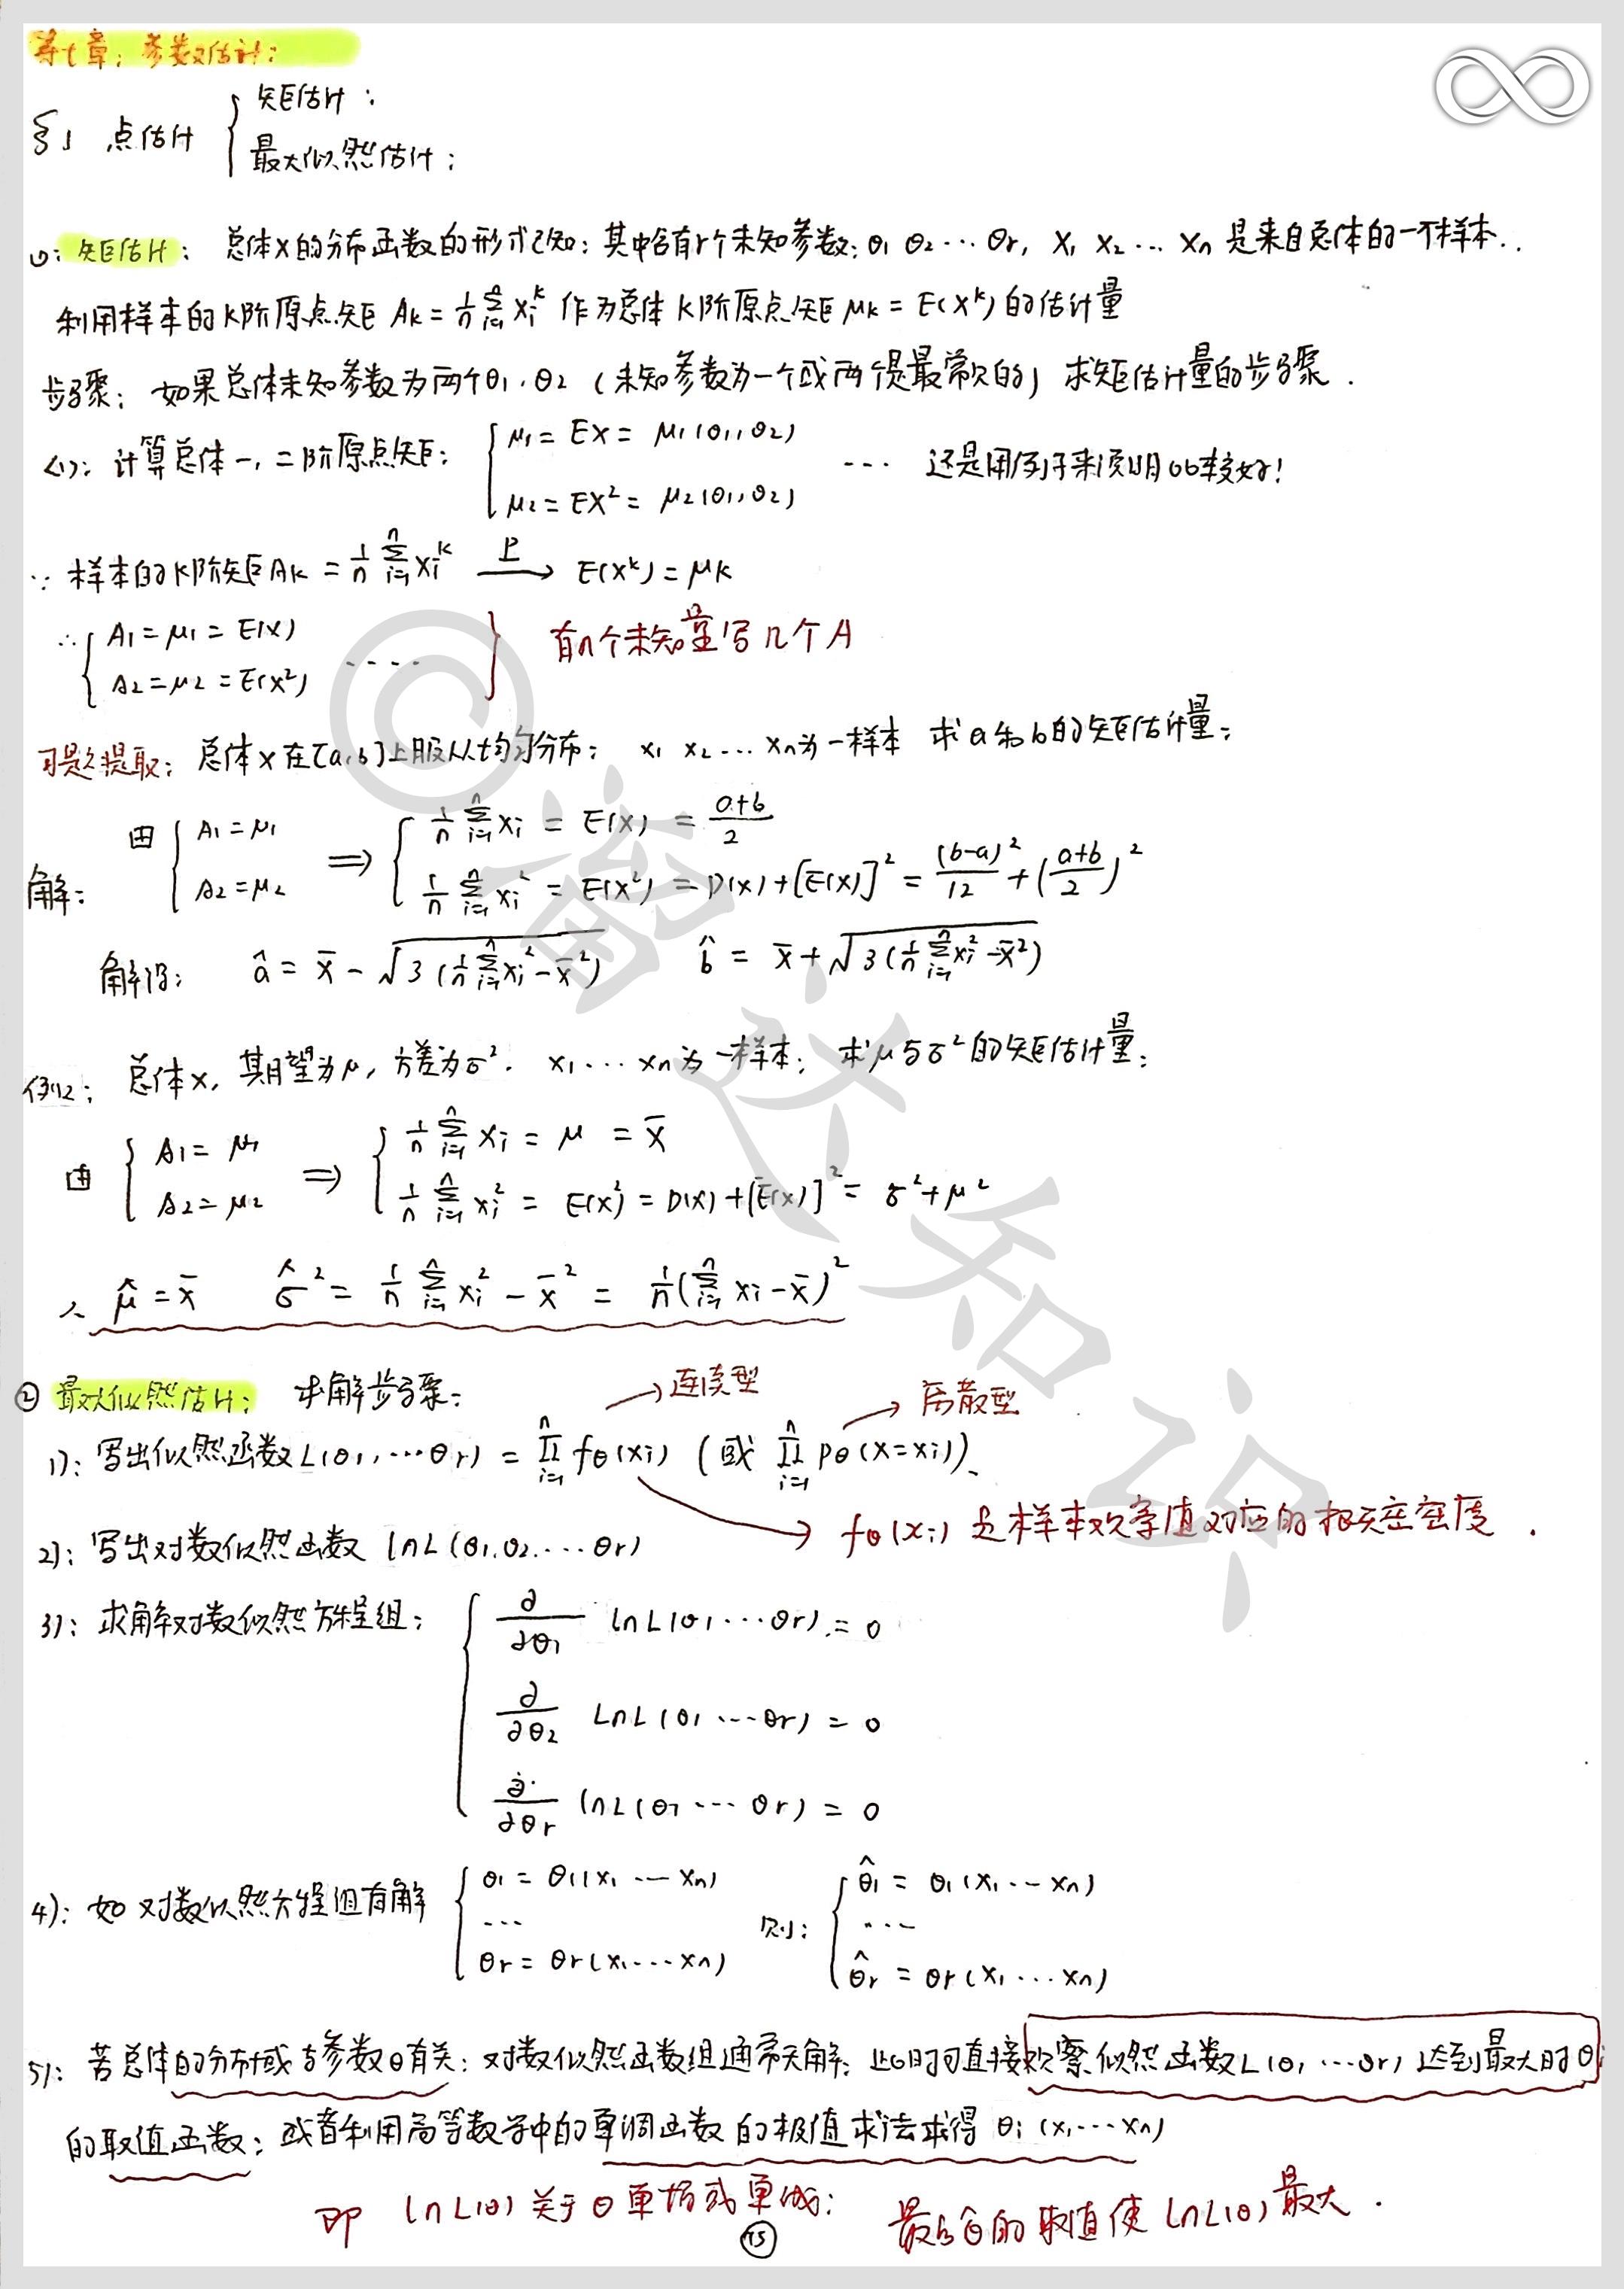 第七章：参数估计：
§1 点估计 { 矩估计：
最大似然估计；
①：矩估计： 总体X的分布函数的形式已知：其中含有r个未知参数：θ1 θ2 … θr，X1 X2 … Xn 是来自总体的一个样本．
利用样本的K阶原点矩 Ak = 1/n Σ(i=1→n) Xi^k 作为总体K阶原点矩 μk = E(X^k) 的估计量
步骤：如果总体未知参数为两个θ1，θ2（未知参数为一个或两个是最常见的）求矩估计量的步骤．
<1>：计算总体一，二阶原点矩： { μ1 = EX = μ1(θ1,θ2)
μ2 = EX² = μ2(θ1,θ2) … 还是用例子来说明比较好！
∵ 样本的K阶矩 Ak = 1/n Σ(i=1→n) Xi^k —P→ E(X^k) = μk
∴ { A1 = μ1 = E(X)
A2 = μ2 = E(X²) ···· } 有n个未知量写几个A
习题提取：总体X在[a,b]上服从均匀分布； X1 X2 … Xn为一样本 求a和b的矩估计量：
解： 由 { A1 = μ1
A2 = μ2 ⟹ { 1/n Σ(i=1→n) Xi = E(X) = (a+b)/2
1/n Σ(i=1→n) Xi² = E(X²) = D(X)+[E(X)]² = (b-a)²/12 + ((a+b)/2)²
解得： â = X̄ - √3(1/n Σ(i=1→n) Xi² - X̄²) b̂ = X̄ + √3(1/n Σ(i=1→n) Xi² - X̄²)
例2： 总体X，其期望为μ，方差为σ²． X1 … Xn为一样本； 求μ与σ²的矩估计量：
由 { A1 = μ1
A2 = μ2 ⟹ { 1/n Σ(i=1→n) Xi = μ = X̄
1/n Σ(i=1→n) Xi² = E(X²) = D(X)+[E(X)]² = σ²+μ²
∴ μ̂ = X̄ σ̂² = 1/n Σ(i=1→n) Xi² - X̄² = 1/n(Σ(i=1→n) Xi - X̄)²
② 最大似然估计： 求解步骤： → 连续型 → 离散型
1)：写出似然函数L(θ1, …θr) = Π(i=1→n) fθ(xi) (或 Π(i=1→n) pθ(X=xi))、
→ fθ(xi) 是样本观察值对应的相关密度．
2)：写出对数似然函数 lnL(θ1,θ2,…θr)
3)：求解对数似然方程组： { ∂/∂θ1 lnL(θ1…θr) = 0
∂/∂θ2 LnL(θ1…θr) = 0
∂/∂θr lnL(θ1…θr) = 0
4)：如对数似然方程组有解 { θ1 = θ1(X1 … Xn)
…
θr = θr(X1…Xn) 则： { θ̂1 = θ1(X1…Xn)
…
θ̂r = θr(X1…Xn)
5)：若总体的分布域与参数θ有关：对数似然函数组通常无解；此时可直接观察似然函数L(θ1…θr)达到最大时θi
的取值函数；或者利用高等数学中的单调函数的极值求法求得 θi(X1…Xn)
即 lnL(θ) 关于θ单增或单减； 最后θ̂的取值使lnL(θ)最大．
75
©蒈达知识